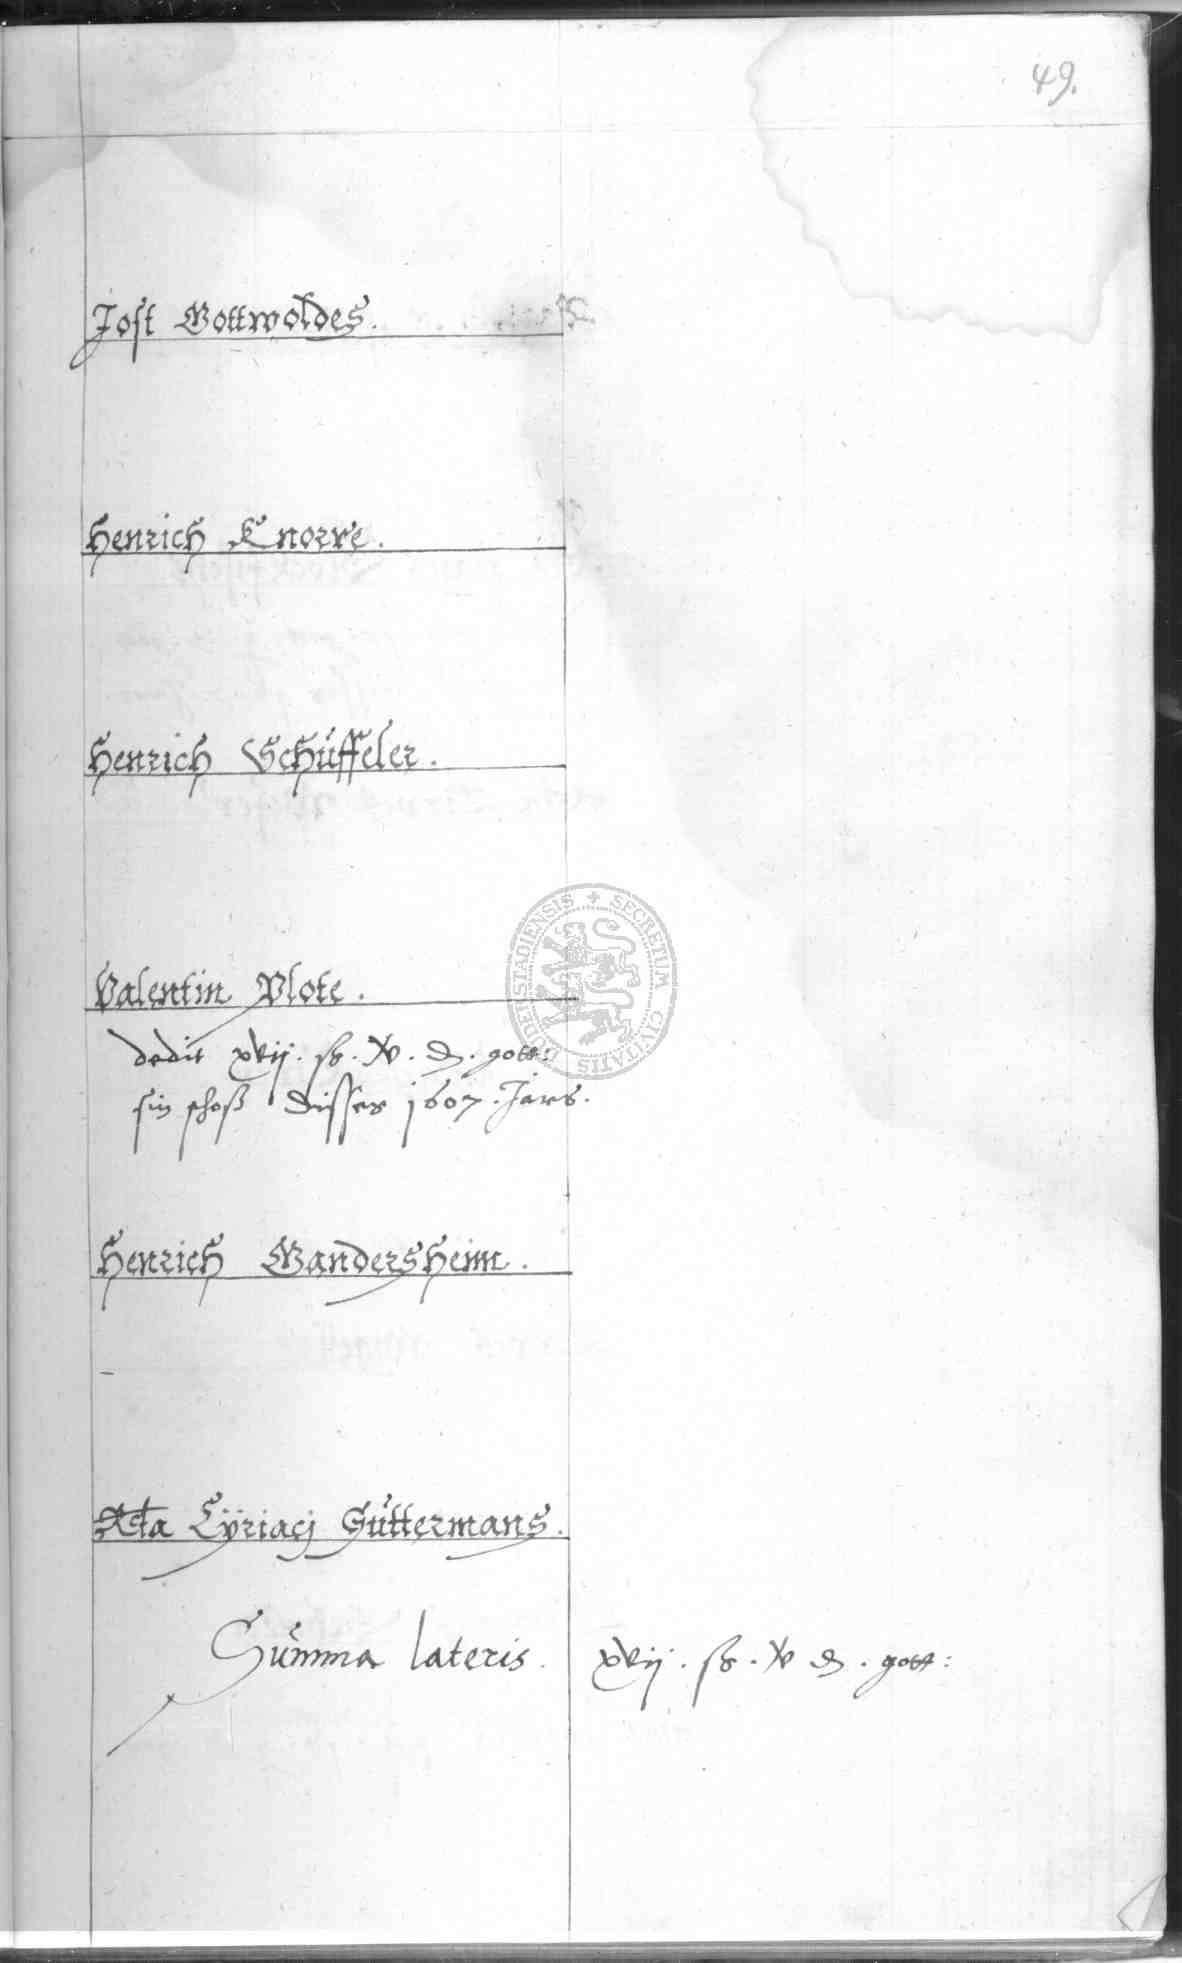 49.
Jost Gottwoldes.
Henrich Knorre.
Henrich Schüffeler.
Valentin Plote.
dedit xvij. ß. x. d. gott:
sin schoß disses 1607. Jars.
Henrich Gandersheim.
Rcta Cÿriacj Güttermans.
Summa lateris. xvij. ß. x d. gott:
SECRETUM CIVITATIS UDENSTADIENSIS